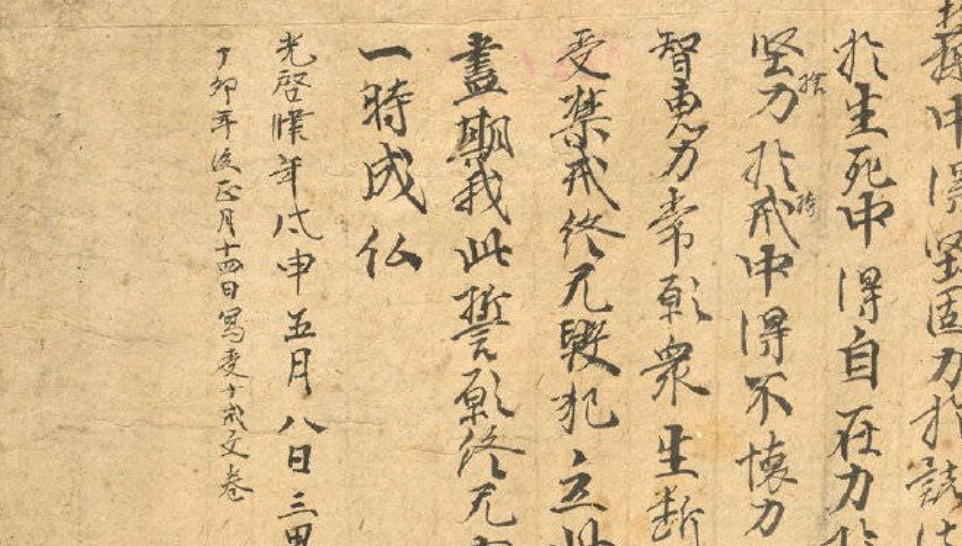 中得坚固力於説法
於生死中得自在力於
坚力於戒中得不懐力
捨
持
智惠力常願衆生断
受禁戒終无毀犯立此
盡期我此誓願終无
一時成仏
光啓肆年戊申五月八日三界
丁卯年後正月十四日寫受十戒文卷